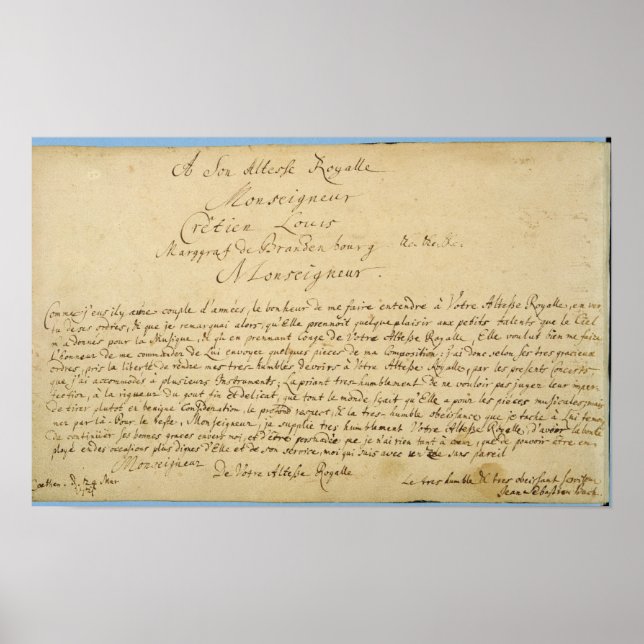 A Son Altesse Royalle
Monseigneur
Crêtien Louis
Marggraf de Brandenbourg &c. &c. &c.
Monseigneur.
Comme j'eus il y a une couple d'années, le bonheur de me faire entendre à Votre Altesse Royalle, en ver
tu de ses ordres, & que je remarquai alors, qu'Elle prennoit quelque plaisir aux petits talents que le Ciel
m'a donnés pour la Musique, & qu'en prennant Conge de Votre Altesse Royalle, Elle voulut bien me faire
l'honneur de me commander de Lui envoyer quelques pieces de ma Composition: j'ai donc selon ses tres gracieux
ordres, pris la liberté de rendre mes tres-humbles devoirs à Votre Altesse Royalle, par les presents Concerts,
que j'ai accommodés à plusieurs Instruments; La priant tres-humblement de ne vouloir pas juger leur imper-
fection, à la rigueur du gout fin et delicat, que tout le monde sçait qu'Elle a pour les pièces musicales; mais
de tirer plutot en benigne Consideration, le profond respect, & la tres-humble obeissance que je tache à Lui temoi-
gner par là. Pour le reste, Monseigneur, je supplie tres humblement Votre Altesse Royalle, d'avoir la bonté
de continüer ses bonnes graces envers moi, et d'être persuadée que je n'ai rien tant à cœur, que de pouvoir être em-
ployé en des occasions plus dignes d'Elle et de son service, moi qui suis avec un zele sans pareil
Monseigneur
De Votre Altesse Royalle
Coethen. d. 24 Mar
1721
Le tres humble & tres obeissant serviteur
Jean Sebastien Bach.